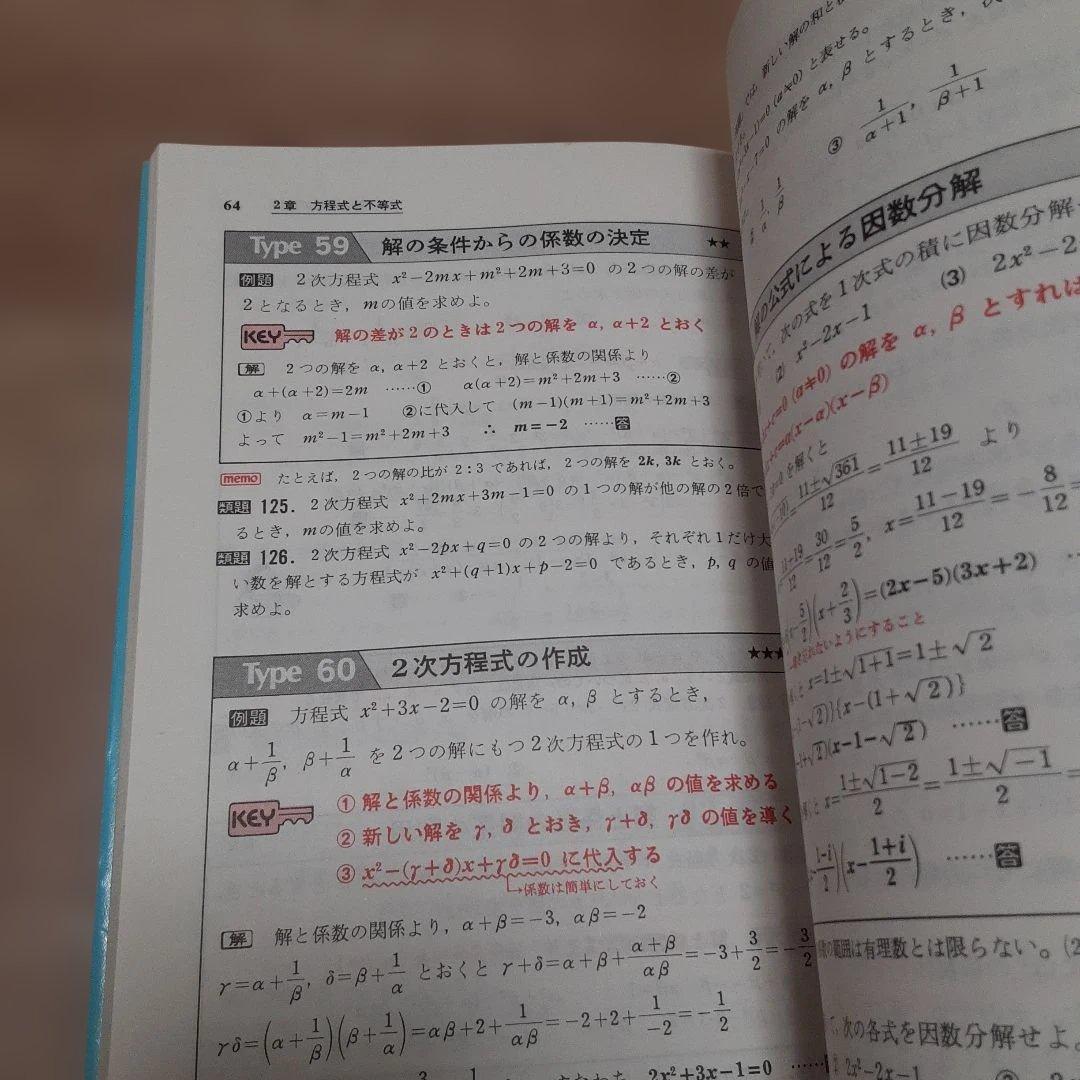 64 2章 方程式と不等式
Type 59 解の条件からの係数の決定 ★★
例題 2次方程式 x²−2mx+m²+2m+3=0 の2つの解の差が
2となるとき,mの値を求めよ。
KEY 解の差が2のときは2つの解を α, α+2 とおく
解 2つの解を α, α+2 とおくと,解と係数の関係より
α+(α+2)=2m ……① α(α+2)=m²+2m+3 ……②
①より α=m−1 ②に代入して (m−1)(m+1)=m²+2m+3
よって m²−1=m²+2m+3 ∴ m=−2 ……答
memo たとえば,2つの解の比が 2:3 であれば,2つの解を 2k, 3k とおく。
類題 125. 2次方程式 x²+2mx+3m−1=0 の1つの解が他の解の2倍で
るとき,mの値を求めよ。
類題 126. 2次方程式 x²−2px+q=0 の2つの解より,それぞれ1だけ大
い数を解とする方程式が x²+(q+1)x+p−2=0 であるとき,p, q の値
求めよ。
Type 60 2次方程式の作成 ★★★
例題 方程式 x²+3x−2=0 の解を α, β とするとき,
α+1/β, β+1/α を2つの解にもつ2次方程式の1つを作れ。
KEY ① 解と係数の関係より,α+β, αβ の値を求める
② 新しい解を γ, δ とおき,γ+δ, γδ の値を導く
③ x²−(γ+δ)x+γδ=0 に代入する
係数は簡単にしておく
解 解と係数の関係より,α+β=−3, αβ=−2
γ=α+1/β, δ=β+1/α とおくと γ+δ=α+β+(α+β)/αβ=−3+3/2=−3/2
γδ=(α+1/β)(β+1/α)=αβ+2+1/αβ=−2+2+1/−2=−1/2
2x²+3x−1=0
新しい解の和と
(a≠0) と表せる。
=0 の解を α, β とするとき,
③ 1/α+1, 1/β+1
1/α, 1/β
解の公式による因数分解
次の式を1次式の積に因数分解
(2) x²−2x−1 (3) 2x²−2
=0 (a≠0) の解を α, β とすれば
=a(x−α)(x−β)
=0 を解くと
=11±√361/12=11±19/12 より
=30/12=5/2, x=11−19/12=−8/12=
(x+2/3)=(2x−5)(3x+2)
忘れないようにすること
x=1±√1+1=1±√2
{x−(1+√2)}
(x−1−√2) ……答
x=1±√1−2/2=1±√−1/2=
(x−1+i/2) ……答
の範囲は有理数とは限らない。
次の各式を因数分解せよ。
2x²−2x−1